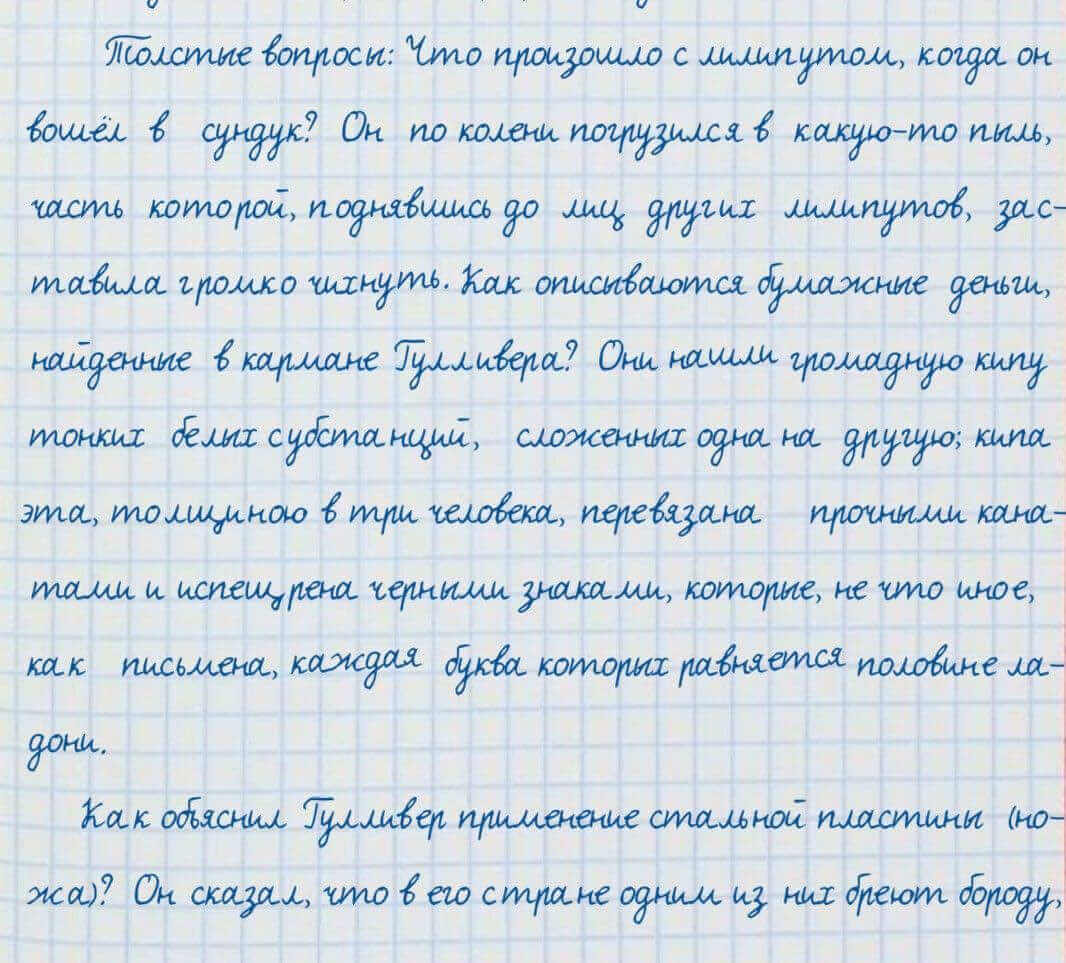 Толстые вопросы: Что произошло с лилипутом, когда он
вошёл в сундук? Он по колени погрузился в какую-то пыль,
часть которой, поднявшись до лиц других лилипутов, зас-
тавила громко чихнуть. Как описываются бумажные деньги,
найденные в кармане Гулливера? Они нашли громадную кипу
тонких белых субстанций, сложенных одна на другую; кипа
эта, толщиною в три человека, перевязана прочными кана-
тами и испещрена черными знаками, которые, не что иное,
как письмена, каждая буква которых равняется половине ла-
дони.
Как объяснил Гулливер применение стальной пластины (но-
жа)? Он сказал, что в его стране одним из них бреют бороду,